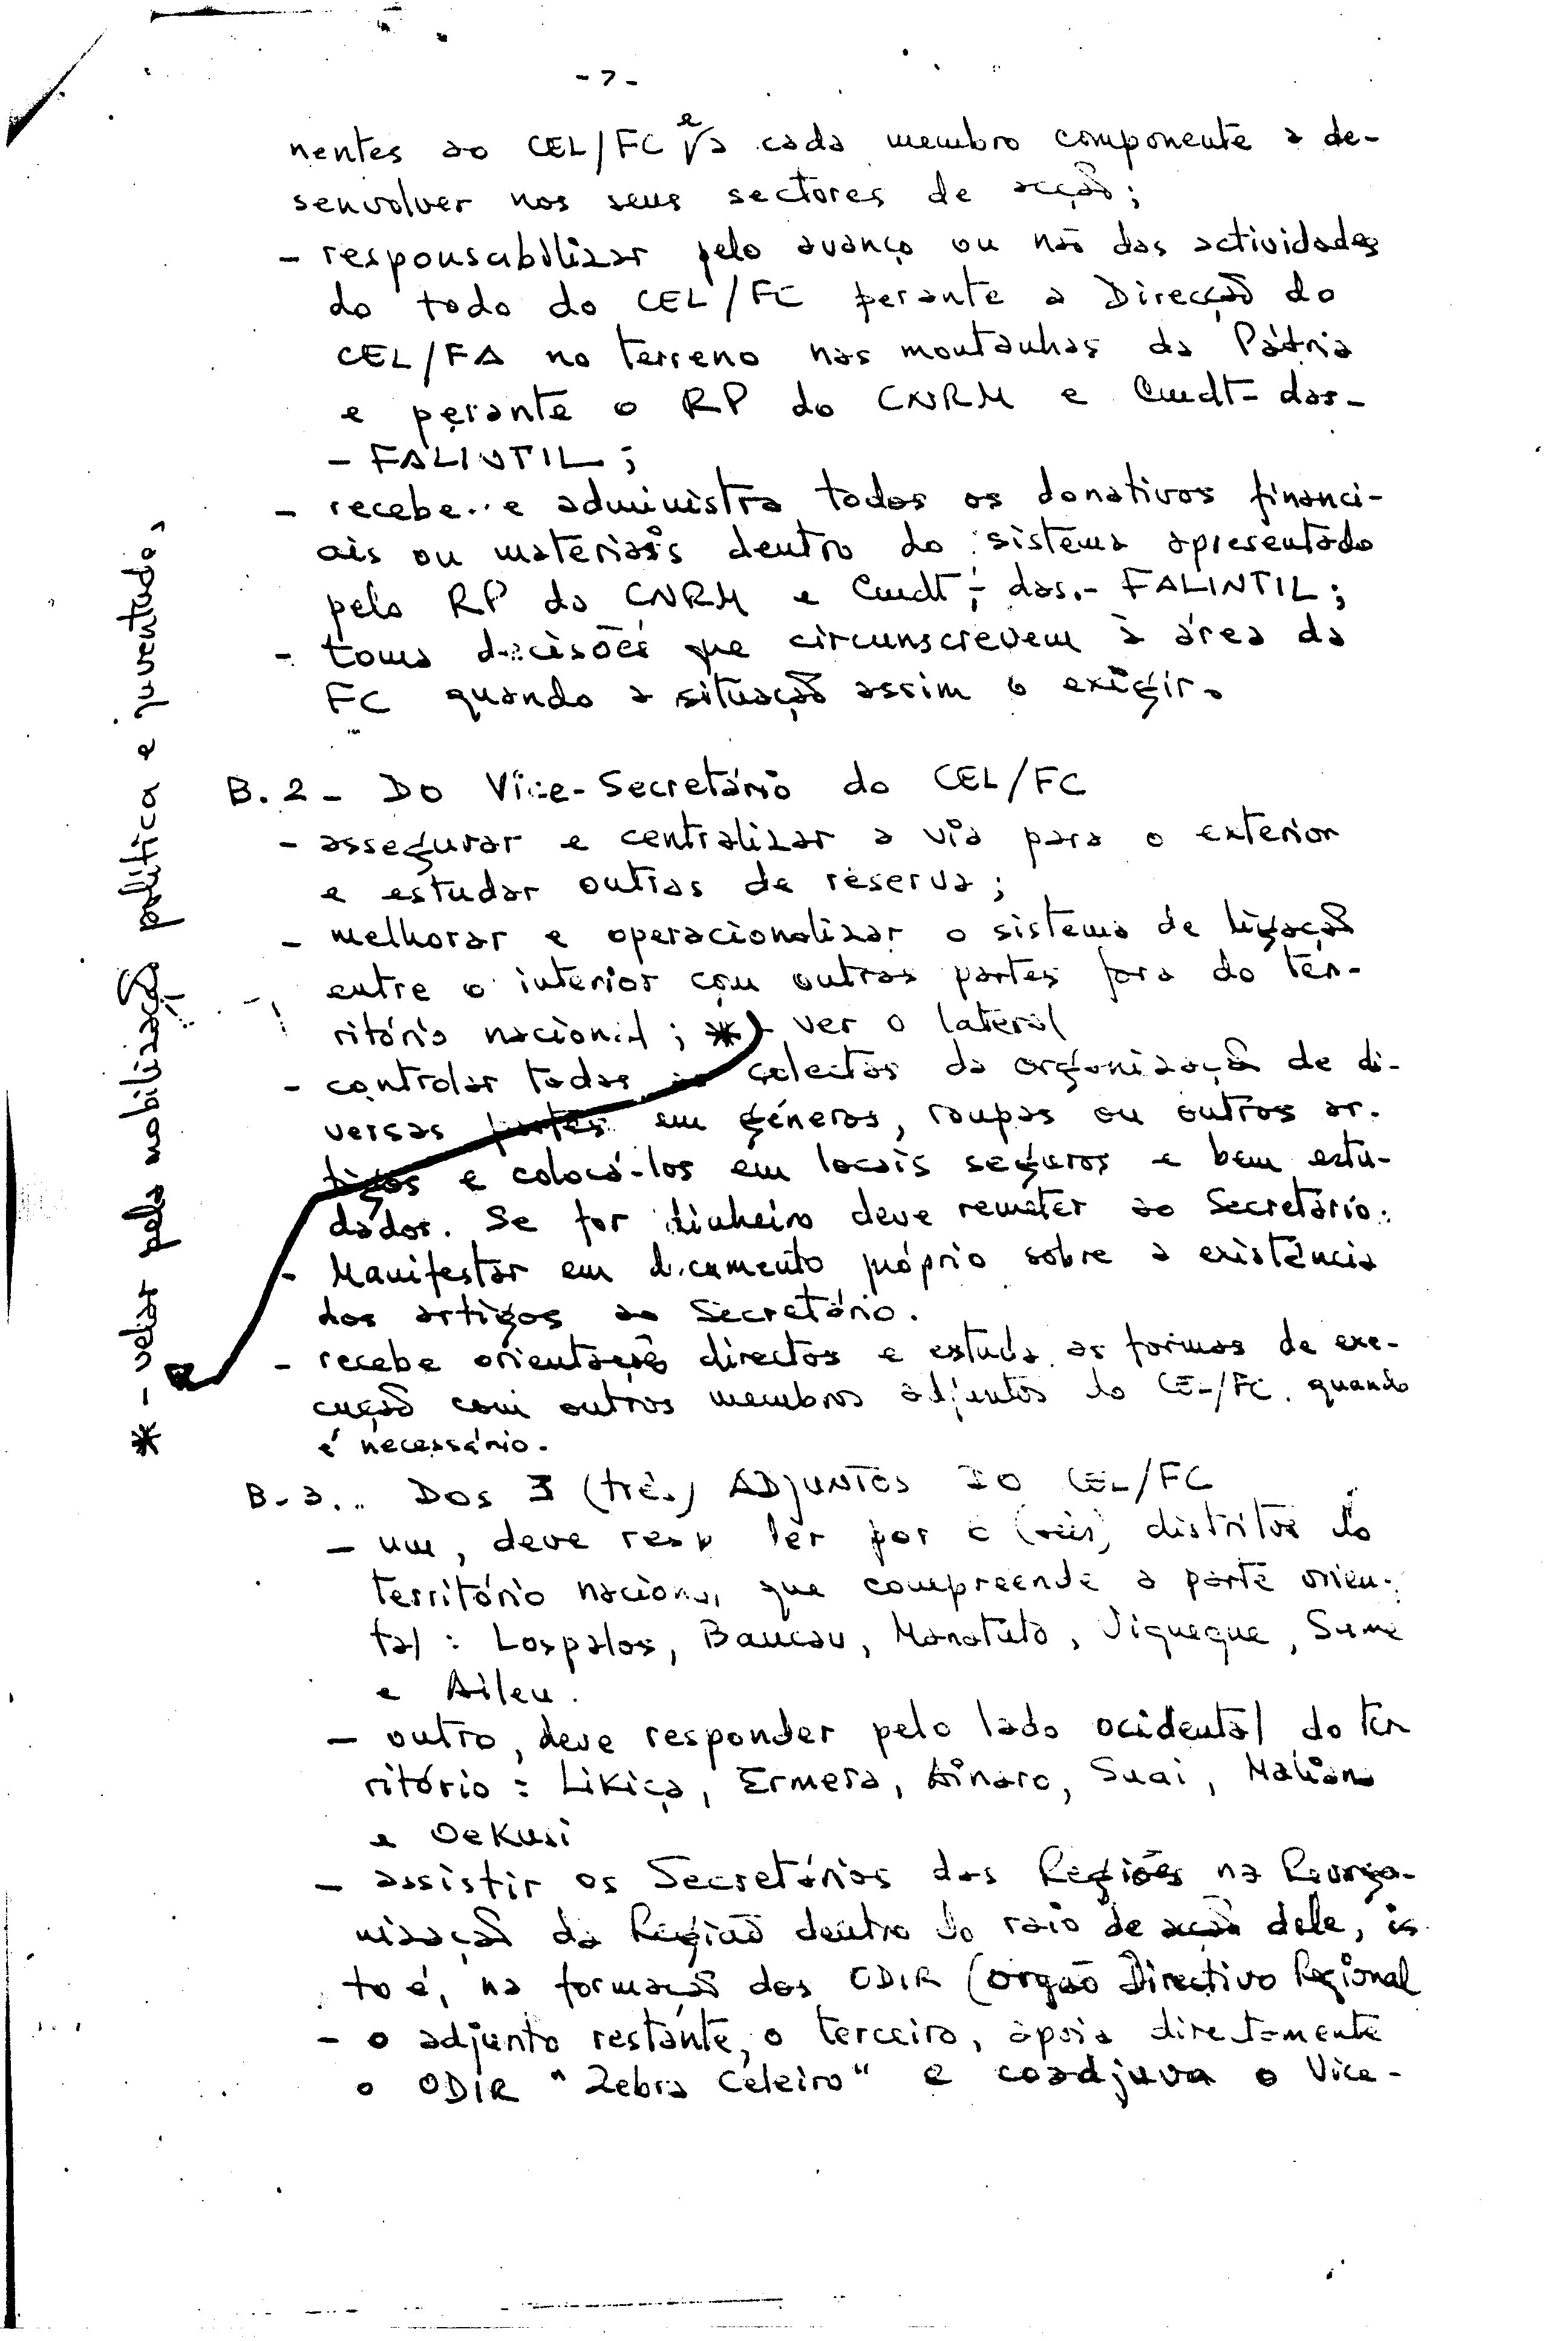 - 7 -
nentes ao CEL/FC e a cada membro componente a de-
senvolver nos seus sectores de acção;
- responsabilizar pelo avanço ou não das actividades
do todo do CEL/FC perante a Direcção do
CEL/FA no terreno nas montanhas da Pátria
e perante o RP do CNRM e Cmdt- das-
- FALINTIL;
- recebe e administra todos os donativos financi-
ais ou materiais dentro do sistema apresentado
pelo RP do CNRM e Cmdt- das.- FALINTIL;
- toma decisões que circunscrevem à área da
FC quando a situação assim o exigir.
B.2 - Do Vice-Secretário do CEL/FC
- assegurar e centralizar a via para o exterior
e estudar outras de reserva;
- melhorar e operacionalizar o sistema de ligação
entre o interior com outras partes fora do ter-
ritório nacional; * ver o lateral
- controlar todas as colectas da organização de di-
versas partes em géneros, roupas ou outros ar-
tigos e colocá-los em locais seguros e bem estu-
dados. Se for dinheiro deve remeter ao Secretário.
- Manifestar em documento próprio sobre a existência
dos artigos ao Secretário.
- recebe orientações directas e estuda as formas de exe-
cução com outros membros adjuntos do CEL/FC quando
é necessário.
B.3.. Dos 3 (três) ADJUNTOS DO CEL/FC
- um, deve responder por 6 (seis) distritos do
território nacional que compreende a parte orien-
tal: Lospalos, Baucau, Manatuto, Viqueque, Same
e Aileu.
- outro, deve responder pelo lado ocidental do ter
ritório: Likiça, Ermera, Ainaro, Suai, Maliana
e Oekusi
- assistir os Secretários das Regiões na Reorga-
nização da Região dentro do raio de acção dele, is
to é, na formação dos ODIR (Orgão Directivo Regional
- o adjunto restante, o terceiro, apoia directamente
o ODIR "Zebra Celeiro" e coadjuva o Vice-
* - velar pela mobilização política e juventude,